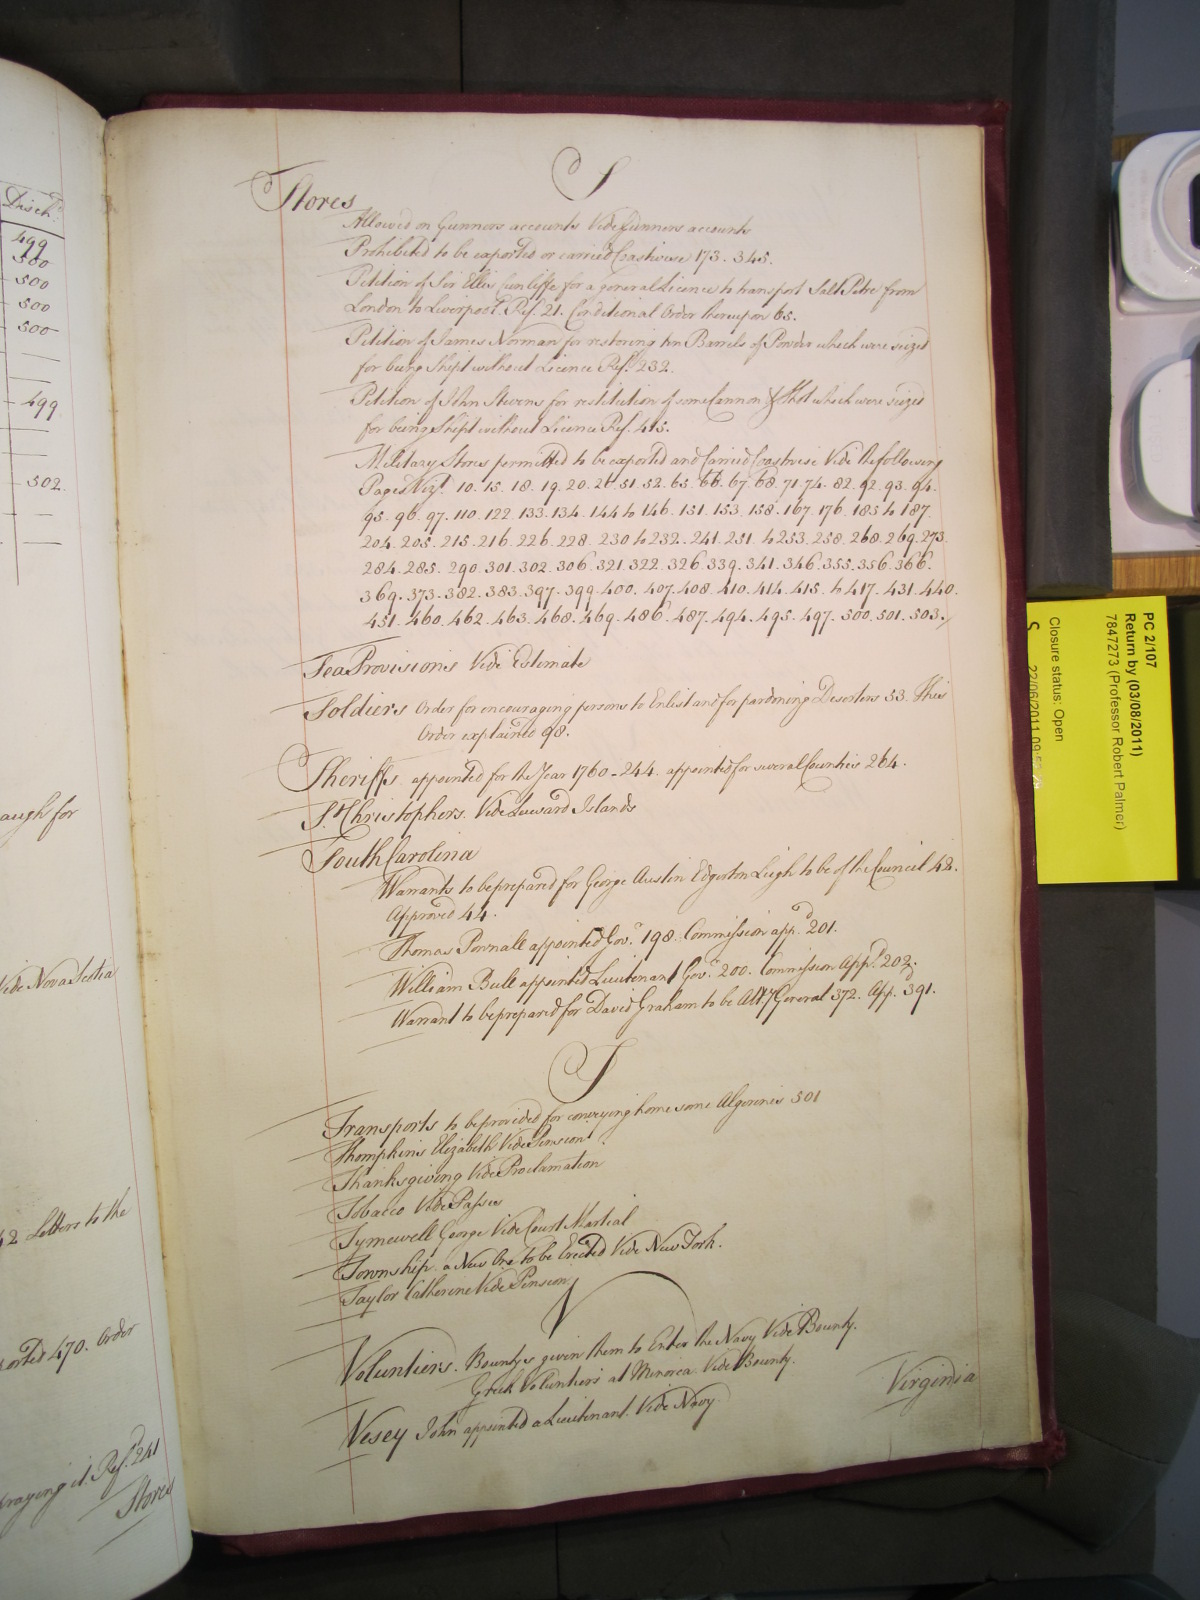 Disch.d
499
500
500
500
500
499
502
augh for
Vide Nova Scotia
42 Letters to the
ported 470. Order
praying it. Ref.d 241
Stores
S
Stores
Allowed on Gunners accounts Vide Gunners accounts
Prohibited to be exported or carried Coastwise 173. 345.
Petition of Sir Ellis Cunliffe for a general Licence to transport Salt Petre from
London to Liverpool. Ref. 21. Conditional Order hereupon 65.
Petition of James Norman for restoring ten Barrels of Powder which were seized
for being Shipt without Licence Ref.d 232.
Petition of John Stevens for restitution of some Cannon & Shot which were seized
for being Shipt without Licence Ref. 415.
Military Stores permitted to be exported and Carried Coastwise Vide the following
Pages Vizt. 10. 15. 18. 19. 20. 26. 51. 52. 65. 66. 67. 68. 71. 74. 82. 92. 93. 94.
95. 96. 97. 110. 122. 133. 134. 144 to 146. 151. 153. 158. 167. 176. 185 to 187.
204. 205. 215. 216. 226. 228. 230 to 232. 241. 251. to 253. 258. 268. 269. 273.
284. 285. 290. 301. 302. 306. 321. 322. 326. 339. 341. 346. 355. 356. 366.
369. 373. 382. 383. 397. 399. 400. 407. 408. 410. 414. 415. to 417. 431. 440.
451. 460. 462. 463. 468. 469. 486. 487. 494. 495. 497. 500. 501. 503.
Sea Provisions Vide Estimate
Soldiers Order for encouraging persons to Enlist and for pardoning Deserters 53. This
Order explained 98.
Sheriffs appointed for the Year 1760 - 244. appointed for several Counties 264.
St. Christophers. Vide Leeward Islands
South Carolina
Warrants to be prepared for George Austin Edgerton Leigh to be of the Council 42.
Approved 44.
Thomas Pownall appointed Gov.r 198. Commission app.d 201.
William Bull appointed Lieutenant Gov.r 200. Commission App.d 202.
Warrant to be prepared for David Graham to be Att'y General 372. App.d 391.
T
Transports to be provided for conveying home some Algerines 501
Thompkins Elizabeth Vide Pension
Thanksgiving Vide Proclamation
Tobacco Vide Passes
Tymewell George Vide Court Martial
Township a New One to be Erected Vide New York.
Taylor Catherine Vide Pension
V
Voluntiers. Bountys given them to Enter the Navy Vide Bounty.
Greek Voluntiers at Minorca Vide Bounty.
Vesey John appointed a Lieutenant. Vide Navy
Virginia
PC 2/107
Return by (03/08/2011)
7847273 (Professor Robert Palmer)
Closure status: Open
S 22/06/2011